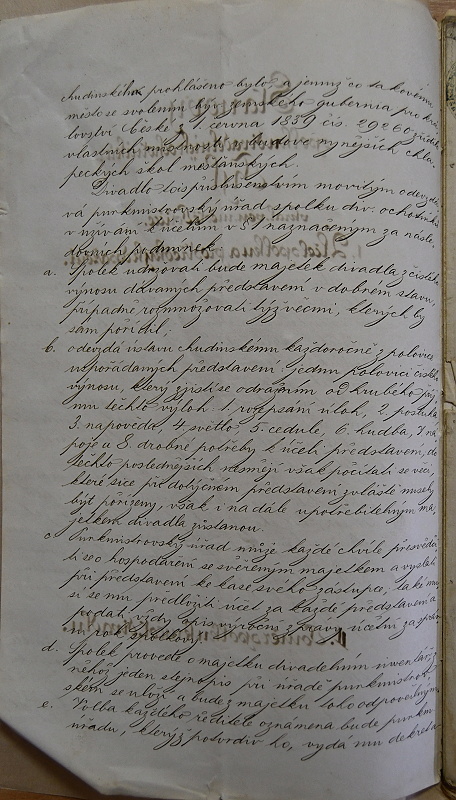 chudinského prohlášeno bylo, a jemuž co takovému
místo se svolením býv. zemského gubernia pro krá
lovství České z 1. června 1839 čís. 29260 zřídit
vlastních místností v budově nynějších chla
peckých škol měšťanských.
Divadlo to i s příslušenstvím movitým odevzdá
vá purkmistrovský úřad spolku div. ochotníků
v užívání k účelům v § 1 naznačeným za násle
dovných podmínek:
a. Spolek udržovati bude majetek divadla z čistého
výnosu dávaných představení v dobrém stavu,
případně rozmnožovati týž věcmi, kterých by
sám pořídil;
b. odevzdá ústavu chudinskému každoročně z polovice
uspořádaných představení jednu polovici čistého
výnosu, který zjistí se odražením od hrubého příj
mu těchto výloh: 1. rozepsání úloh, 2. posluha
3. napověda, 4. světlo, 5. cedule, 6. hudba, 7. ná
poje a 8. drobné potřeby k účeli představení, do
těchto poslednějších nesmějí však počítati se věci,
které sice při dotyčném představení zvláště musely
býti pořízeny, však i na dále upotřebitelným ma
jetkem divadla zůstanou.
c. Purkmistrovský úřad může každé chvíle přesvědči
ti se o hospodaření se svěřeným majetkem a vyslati
při představení ke kase svého zástupce, také musí
si se mu předložiti účet za každé představení a
podati vždy opis výroční zprávy účetní za správ
ní rok spolkový.
d. Spolek provede o majetku divadelním inventář, z
něhož jeden stejnopis při úřadě purkmistrov
ském se uloží a bude z majetku toho odpovědným
e. Volba každého ředitele oznámena bude purkm.
úřadu, kterýž potvrdiv ho, vydá mu dekret a